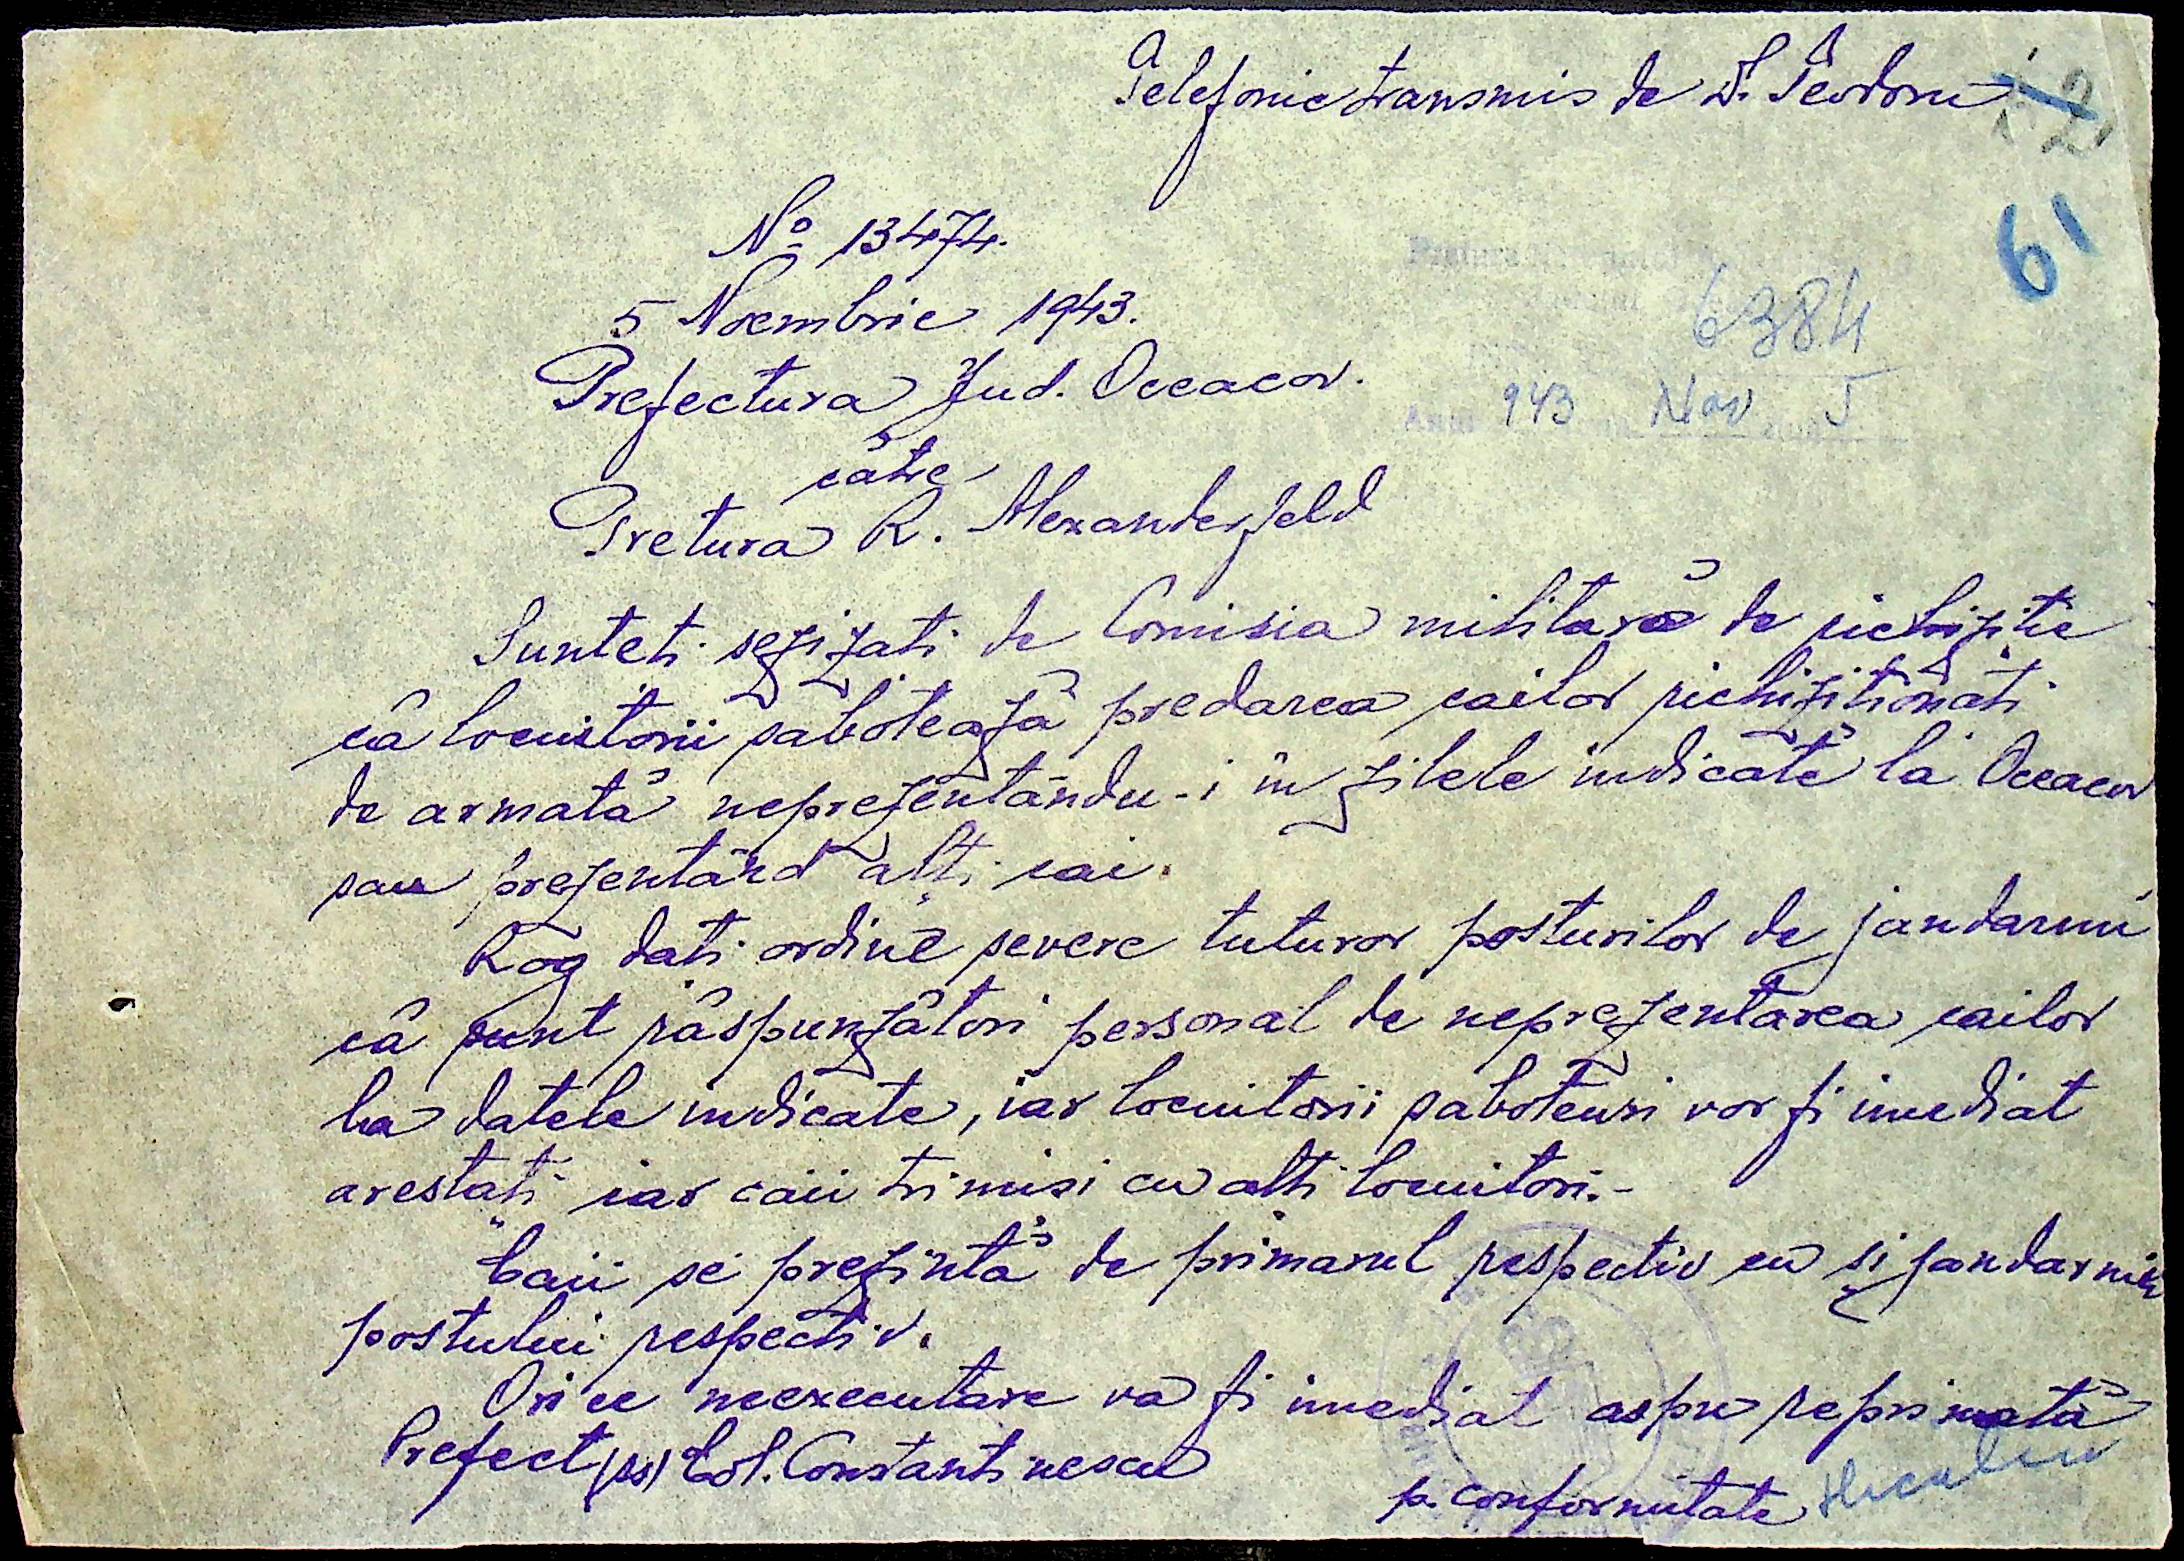 Telefonic transmis de D. Teodoru
2
61
No 13474.
5 Noembrie 1943.
6384
Prefectura Jud. Oceacov.
Anul 943 Nov 5
către
Pretura R. Alexanderfeld
Sunteti sezizati de Comisia militară de richiziție
că locuitorii sabotează predarea cailor richiziționati
de armată neprezentându-i in zilele indicate la Oceacov
sau prezentând alți cai.
Rog dati ordine severe tuturor posturilor de jandarmi
că sunt răspunzători personal de neprezentarea cailor
la datele indicate, iar locuitorii saboteuri vor fi imediat
arestați iar caii trimisi cu alti locuitori.-
Caii se prezintă de primarul respectiv cu si jandarmii
postului respectiv.
Orice neexecutare va fi imediat aspru reprimată
Prefect (ss) Col. Constantinescu
p. conformitate